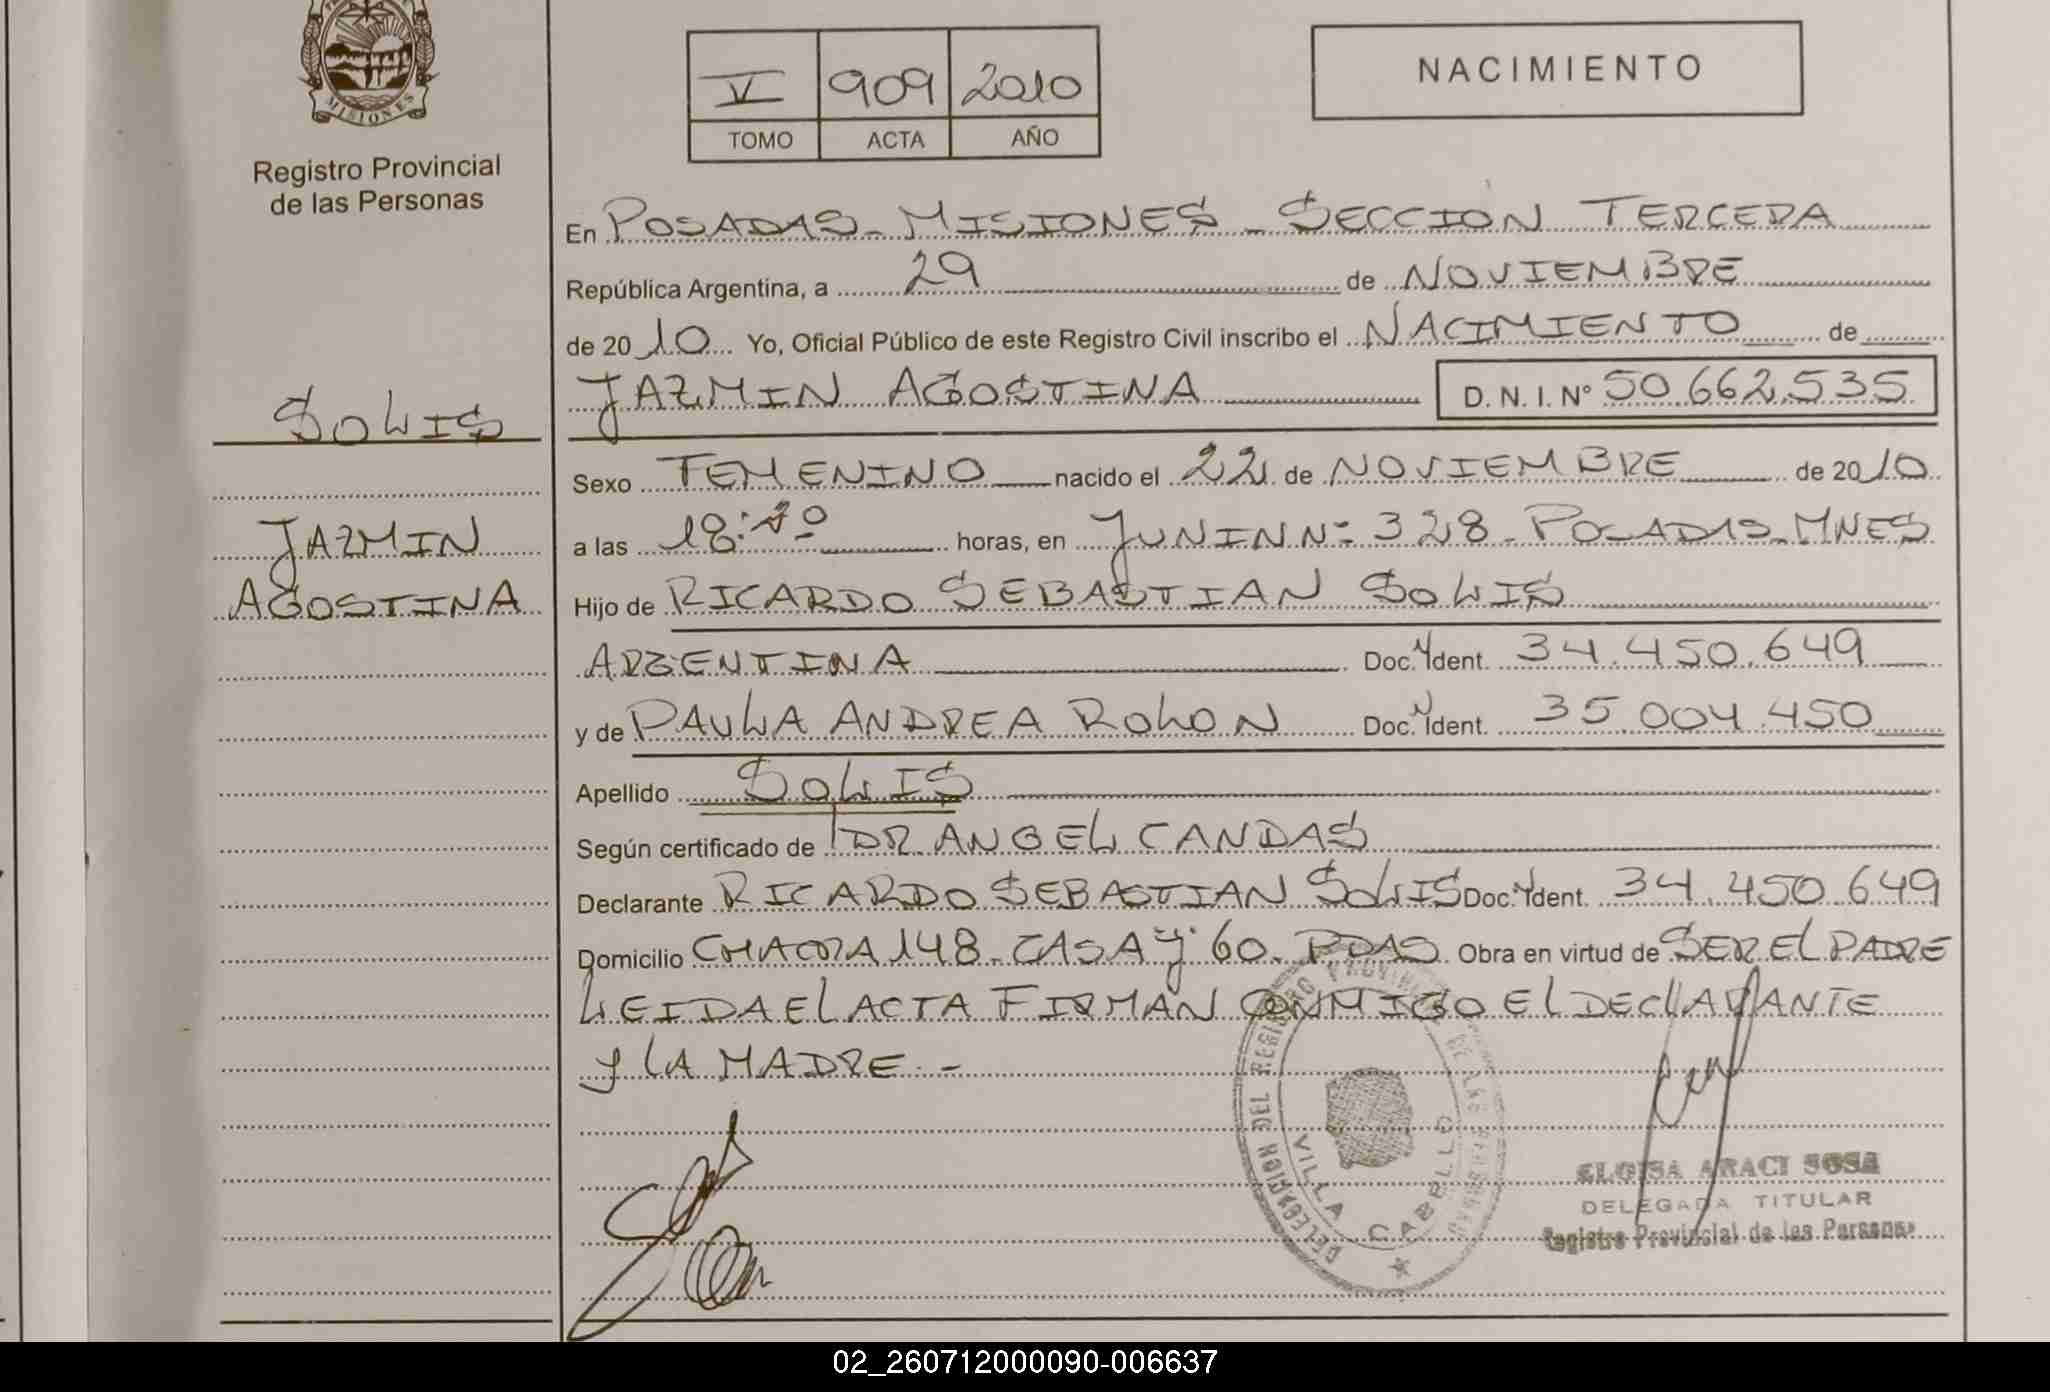 MISIONES
Registro Provincial
de las Personas
V 909 2010
TOMO ACTA AÑO
NACIMIENTO
En POSADAS - MISIONES - SECCION TERCERA
República Argentina, a 29 de NOVIEMBRE
de 2010 Yo, Oficial Público de este Registro Civil inscribo el NACIMIENTO de
JAZMIN AGOSTINA D.N.I. Nº 50.662.535
SOLIS
Sexo FEMENINO nacido el 22 de NOVIEMBRE de 2010
JAZMIN
a las horas, en JUNIN Nº 328 - POSADAS - MNES
AGOSTINA
Hijo de RICARDO SEBASTIAN SOLIS
ARGENTINA Doc. Ident. 34.450.649
y de PAULA ANDREA ROLON Doc. Ident. 35.004.450
Apellido SOLIS
Según certificado de DR. ANGEL CANDAS
Declarante RICARDO SEBASTIAN SOLIS Doc. Ident. 34.450.649
Domicilio CHACRA 148 - CASA Y 60 - PDAS Obra en virtud de SER EL PADRE
LEIDA EL ACTA FIRMAN CONMIGO EL DECLARANTE
Y LA MADRE -
DELEGACION DEL REGISTRO PROVINCIAL DE LAS PERSONAS
VILLA CABELLO
ELOISA ARACI SOSA
DELEGADA TITULAR
Registro Provincial de las Personas
02_260712000090-006637